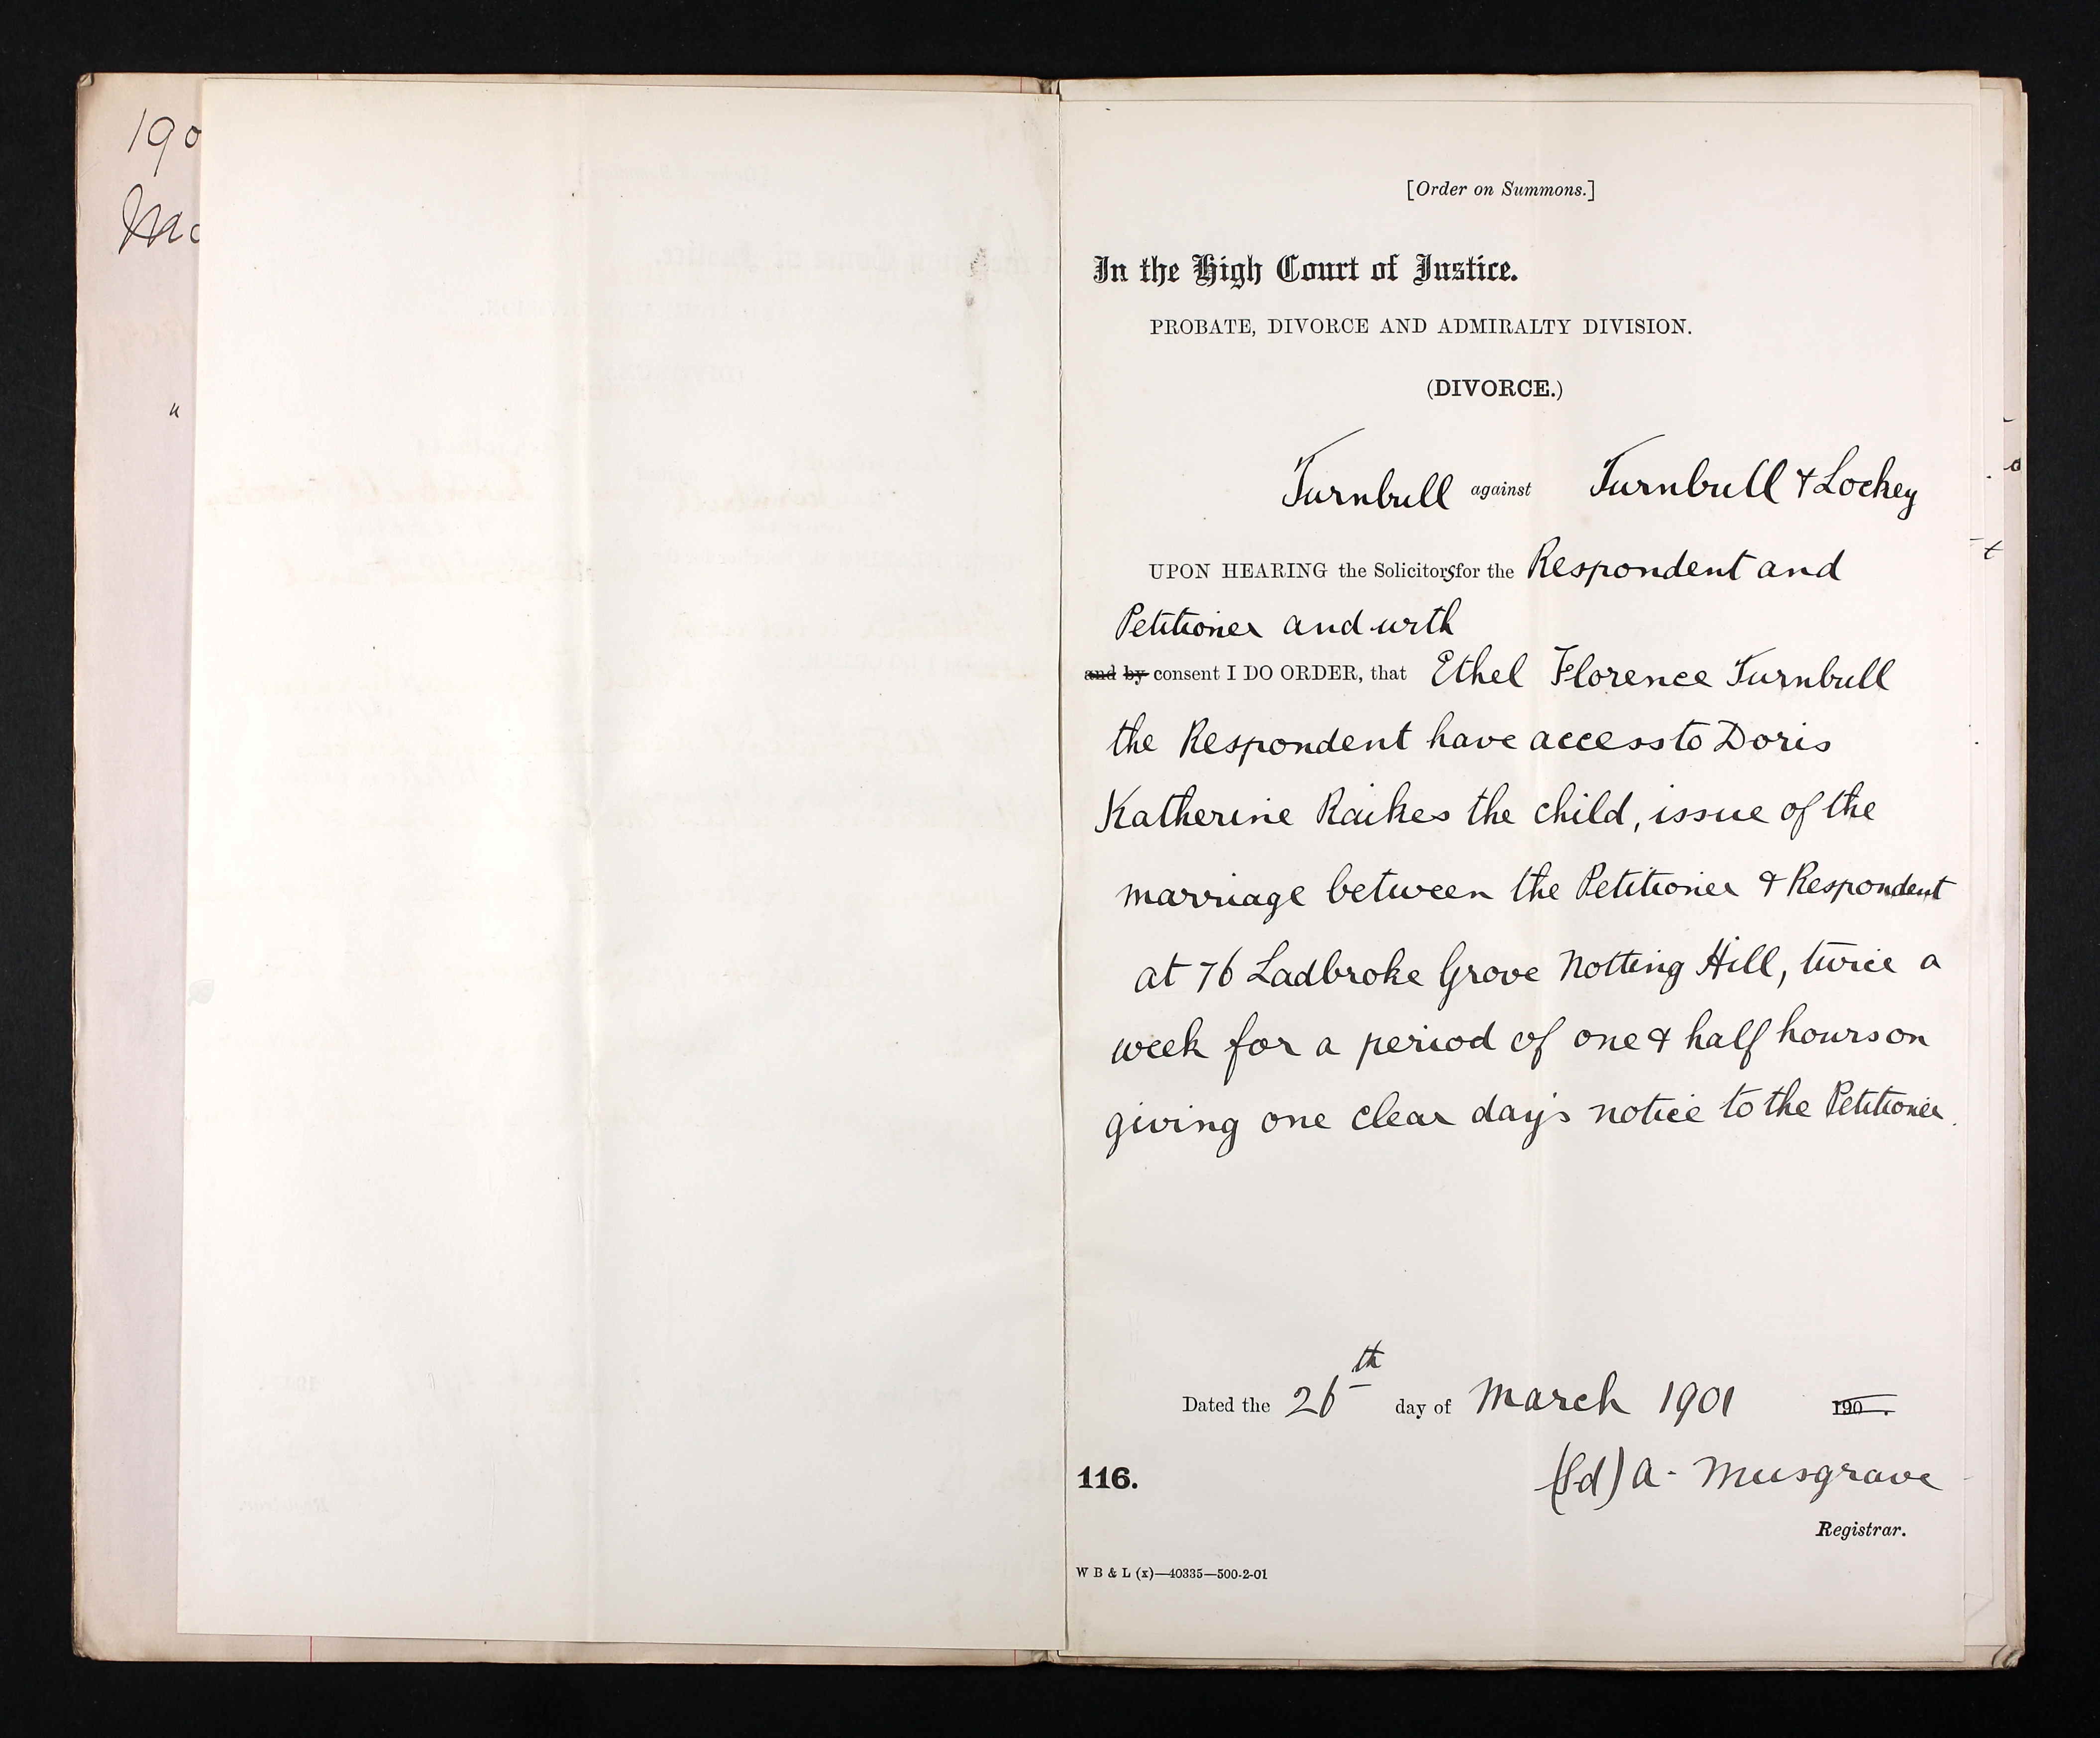 190
Ma
[Order on Summons.]
In the High Court of Justice.
PROBATE, DIVORCE AND ADMIRALTY DIVISION.
(DIVORCE.)
Turnbull against Turnbull & Lockey
UPON HEARING the Solicitors for the Respondent and
Petitioner and with
and by consent I DO ORDER, that Ethel Florence Turnbull
the Respondent have access to Doris
Katherine Raikes the child, issue of the
marriage between the Petitioner & Respondent
at 76 Ladbroke Grove Notting Hill, twice a
week for a period of one & half hours on
giving one clear day's notice to the Petitioner.
Dated the 26th day of March 1901 190 .
116.
(Sd) A. Musgrave
Registrar.
W B & L (x)—40335—500-2-01